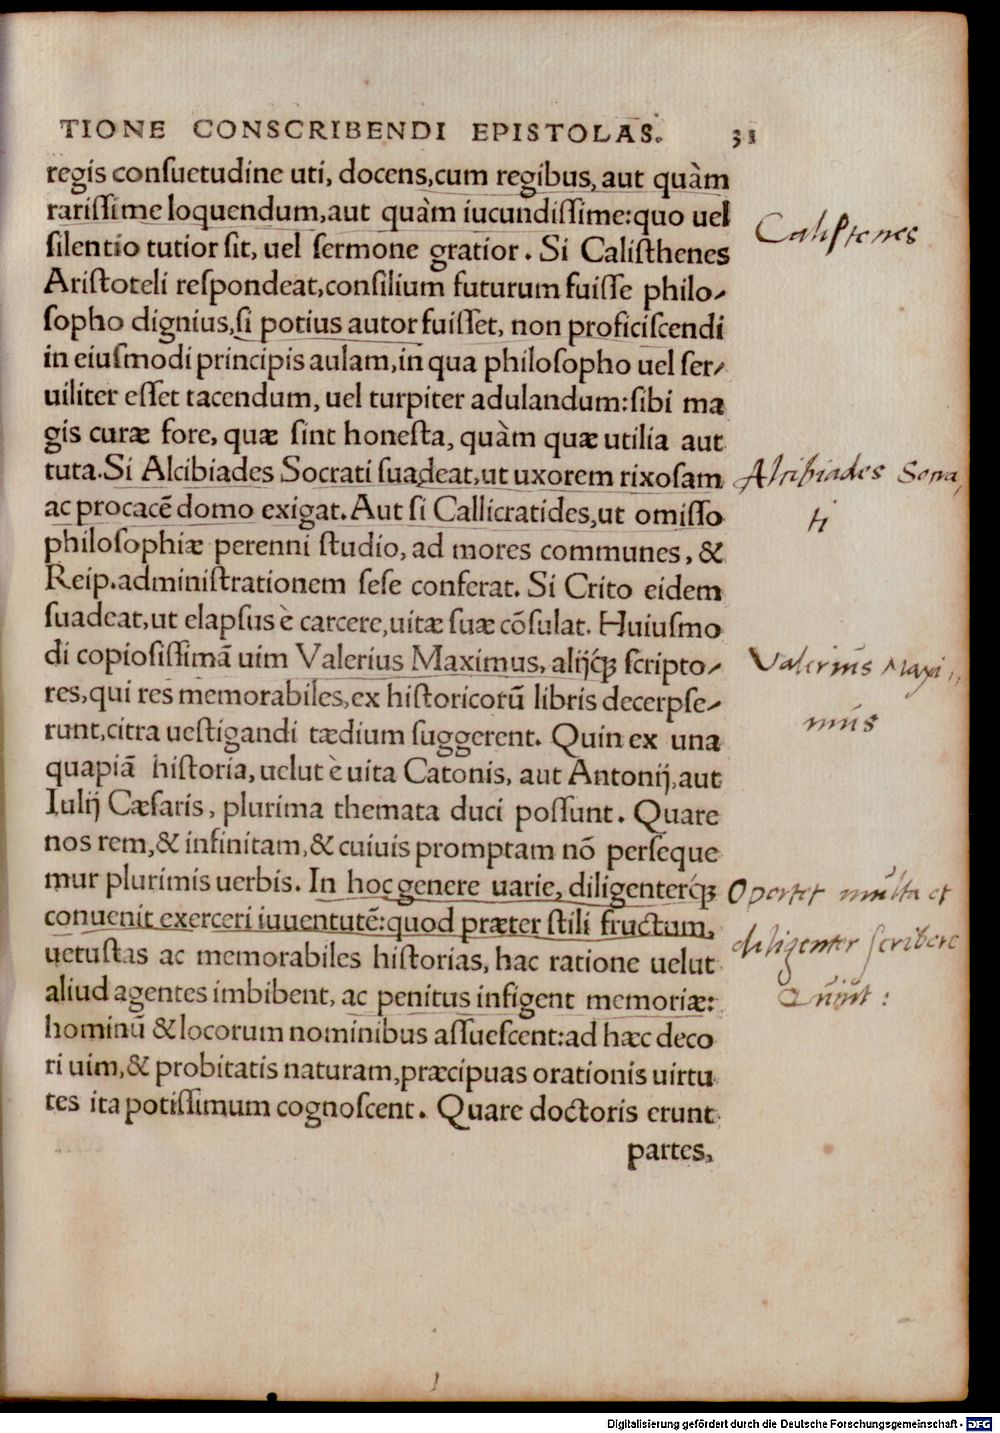 TIONE CONSCRIBENDI EPISTOLAS. 31
regis consuetudine uti, docens, cum regibus, aut quàm
rarissime loquendum, aut quàm iucundissime: quo uel
silentio tutior sit, uel sermone gratior. Si Calisthenes
Aristoteli respondeat, consilium futurum fuisse philo-
sopho dignius, si potius autor fuisset, non proficiscendi
in eiusmodi principis aulam, in qua philosopho uel ser-
uiliter esset tacendum, uel turpiter adulandum: sibi ma
gis curæ fore, quæ sint honesta, quàm quæ utilia aut
tuta. Si Alcibiades Socrati suadeat, ut uxorem rixosam
ac procacē domo exigat. Aut si Callicratides, ut omisso
philosophiæ perenni studio, ad mores communes, &
Reip. administrationem sese conferat. Si Crito eidem
suadeat, ut elapsus è carcere, uitæ suæ cōsulat. Huiusmo
di copiosissimā uim Valerius Maximus, alijq́; scripto-
res, qui res memorabiles, ex historicorū libris decerpse-
runt, citra uestigandi tædium suggerent. Quin ex una
quapiā historia, uelut è uita Catonis, aut Antonij, aut
Iulij Cæsaris, plurima themata duci possunt. Quare
nos rem, & infinitam, & cuiuis promptam nō perseque
mur plurimis uerbis. In hoc genere uarie, diligenterq́;
conuenit exerceri iuuentutē: quod præter stili fructum,
uetustas ac memorabiles historias, hac ratione uelut
aliud agentes imbibent, ac penitus infigent memoriæ:
hominū & locorum nominibus assuescent: ad hæc deco
ri uim, & probitatis naturam, præcipuas orationis uirtu
tes ita potissimum cognoscent. Quare doctoris erunt
partes,
Calistenes
Alcibiades Socra
ti
Valerius Maxi
mus
Oportet multa et
diligenter scribere
Digitalisierung gefördert durch die Deutsche Forschungsgemeinschaft - DFG